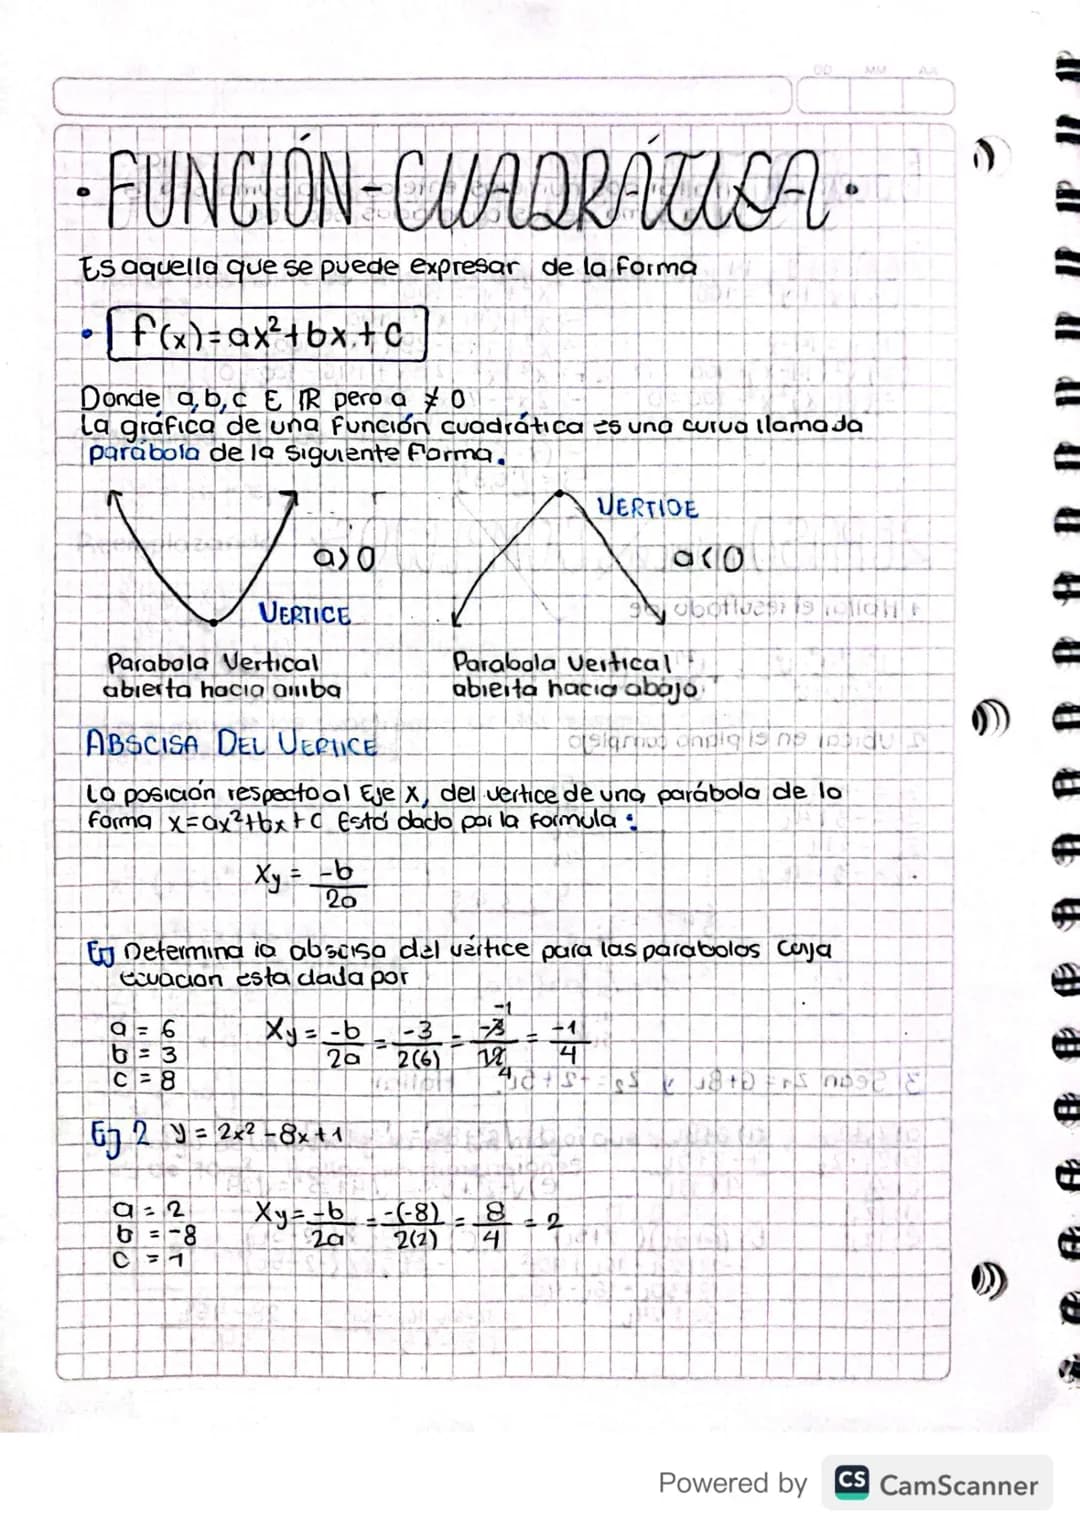 DD MM AA
·FUNCIÓN-CUADRÁTICA·
Es aquella que se puede expresar de la forma
• f(x)=ax²+bx+c
Donde a,b,c E IR pero a ≠ 0
La gráfica de una función cuadrática es una curva llamada
parábola de la siguiente forma.
VERTIDE
a>0
a<0
VERTICE
Parabola Vertical
abierta hacia arriba
Parabola Vertical
abierta hacia abajo
ABSCISA DEL VERTICE
La posición respecto al Eje X, del vertice de una parábola de la
forma x=ax²+bx+c Está dado por la formula:
Xy = -b/2a
Ej Determina la abscisa del vértice para las parabolas cuya
ecuacion esta dada por
a = 6
b = 3
c = 8
Xy = -b/2a = -3/2(6) = -3/12 = -1/4
-1
4
Ej 2 y = 2x²-8x+1
a = 2
b = -8
c = 1
Xy = -b/2a = -(-8)/2(2) = 8/4 = 2
Powered by CS CamScanner